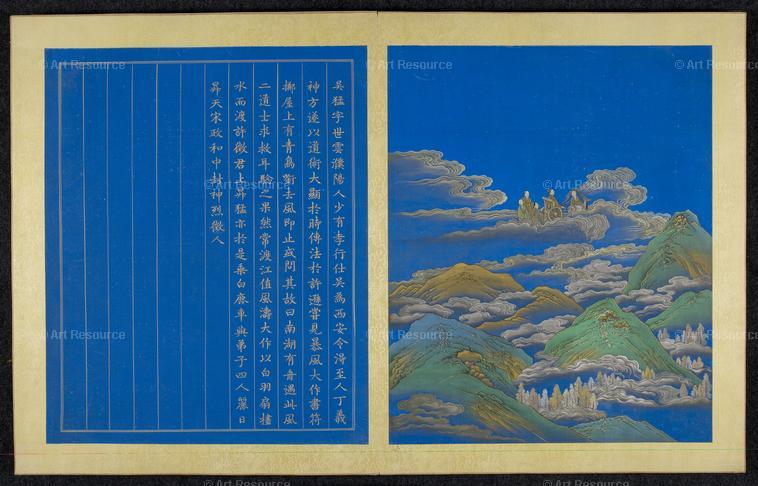 吳猛字世雲濮陽人少有孝行仕吳為西安令淂至人丁義
神方遂以道術大顯於時傳法於許遜嘗見暴風大作書符
擲屋上有青鳥銜去風即止或問其故曰南湖有舟遇此風
二道士求救耳驗之果然常渡江值風濤大作以白羽扇
水而渡許徵君上昇猛亦於是乘白鹿車與弟子四人麗日
昇天宋政和中封神烈徵人
© Art Resource
© Art Resource
© Art Resource
© Art Resource
© Art Resource
© Art Resource
© Art Resource
© Art Resource
© Art Resource
© Art Resource
© Art Resource
© Art Resource